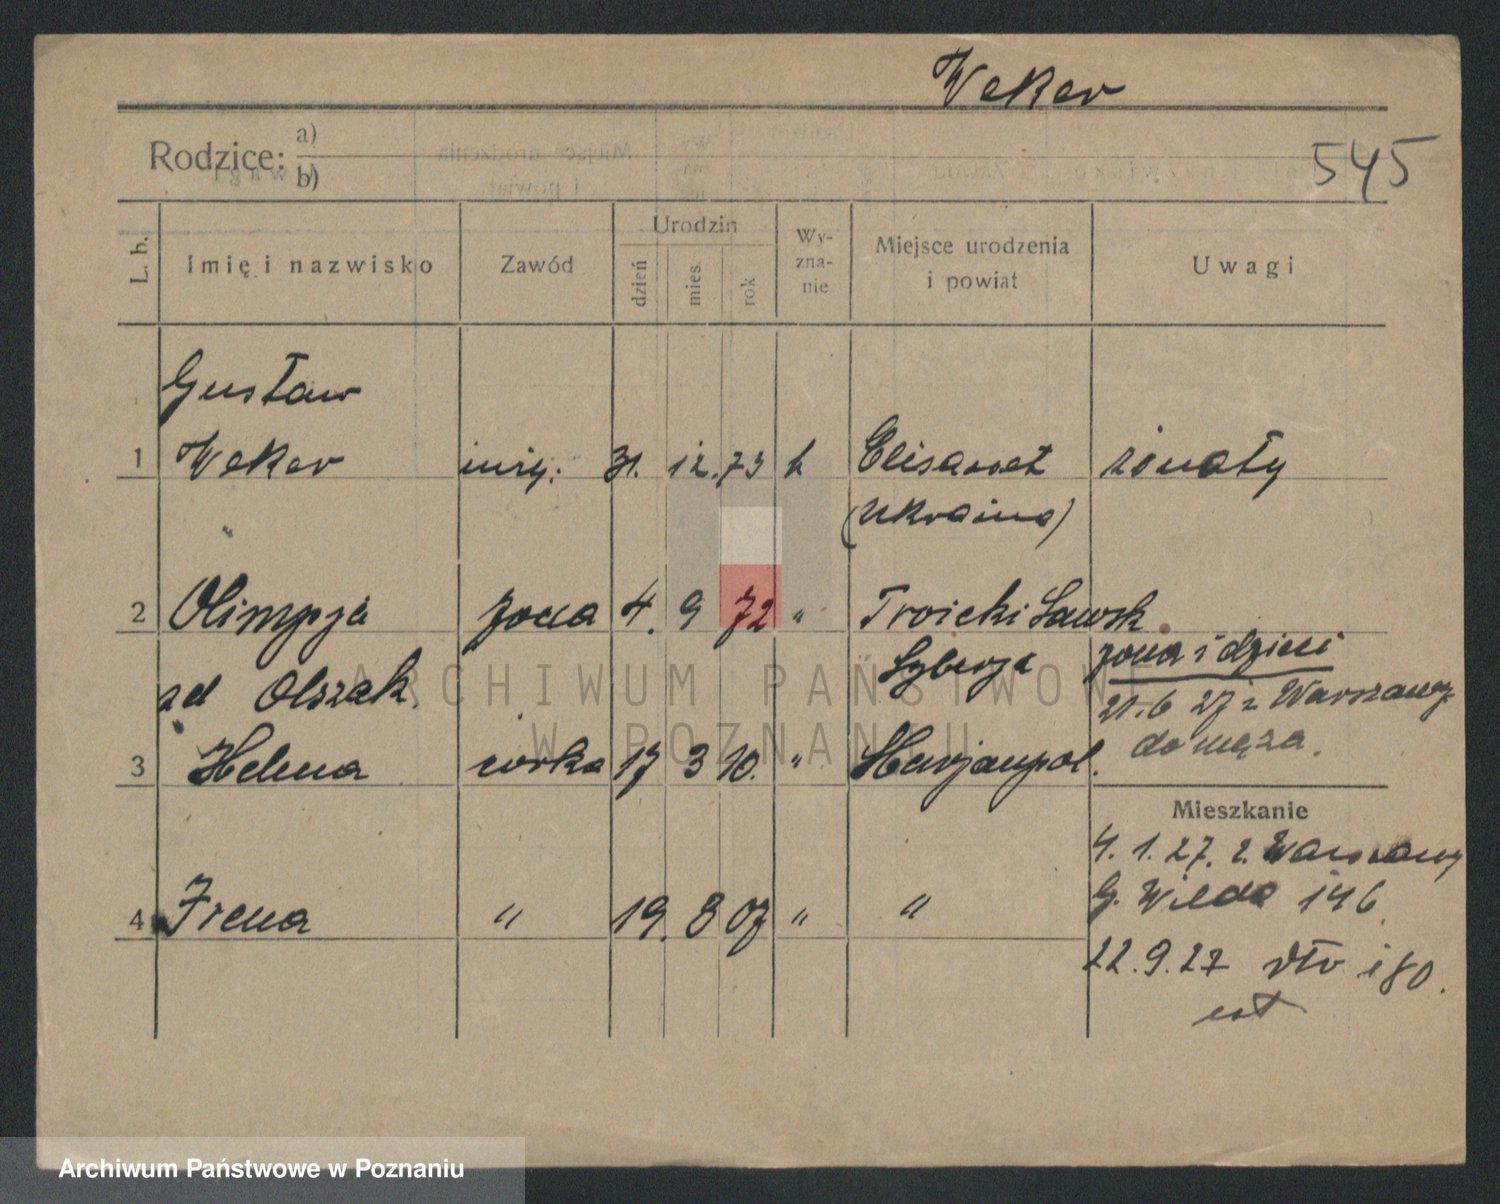 Weker
545
Rodzice: a)
b)
L. b.
Imię i nazwisko
Zawód
Urodzin
dzień
mies.
rok
Wy-
zna-
nie
Miejsce urodzenia
i powiat
Uwagi
Gustaw
1 Weker inży. 31. 12. 73 k Elisawet żonaty
(Ukraina)
2 Olimpja żona 4. 9 72 " Troicki Sawsk.
zd Olszak Syberja
żona i dzieci
21.6 27 z Warszawy
do męża.
3 Helena córka 17 3 10. " Marjanpol.
Mieszkanie
4. 1. 27. z. Warszawy
G. Wilda 146.
4 Irena " 19. 8 07 " "
22. 9. 27 dto 180.
ARCHIWUM PAŃSTWOWE
W POZNANIU
Archiwum Państwowe w Poznaniu